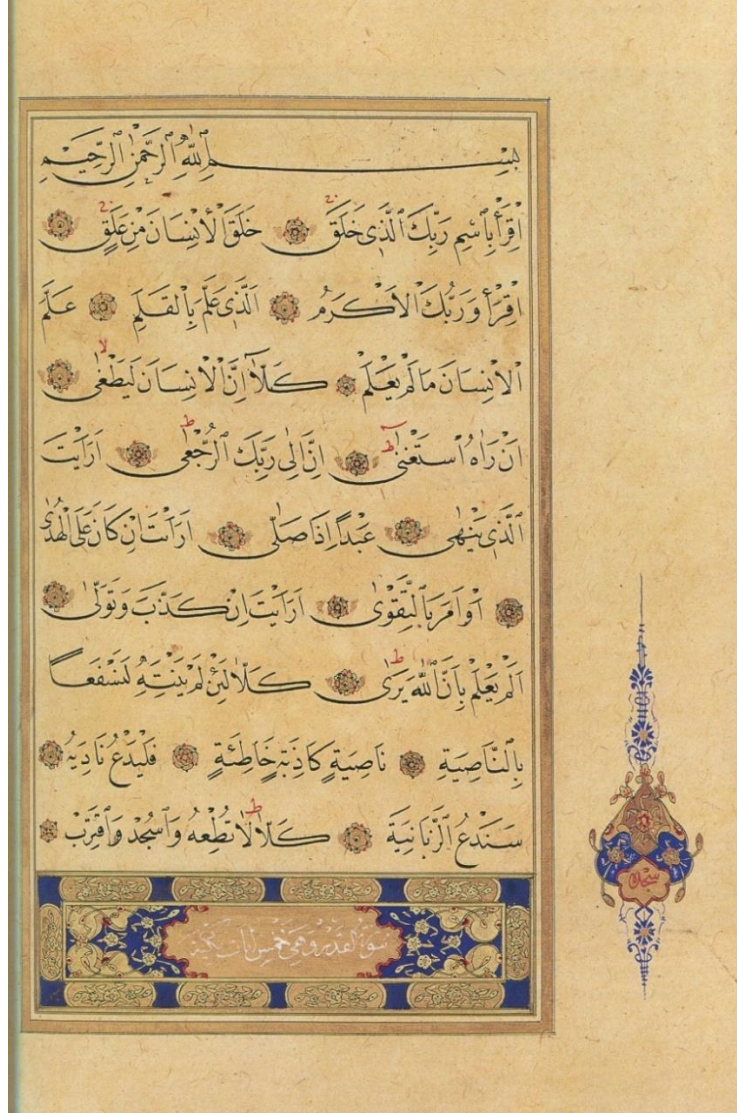 بِسْمِ ٱللّٰهِ ٱلرَّحْمٰنِ ٱلرَّحِيمِ
اِقْرَأْ بِٱسْمِ رَبِّكَ ٱلَّذِى خَلَقَ ۝ خَلَقَ ٱلْاِنْسَانَ مِنْ عَلَقٍ ۝
اِقْرَأْ وَرَبُّكَ ٱلْاَكْرَمُ ۝ اَلَّذِى عَلَّمَ بِالْقَلَمِ ۝ عَلَّمَ
ٱلْاِنْسَانَ مَا لَمْ يَعْلَمْ ۝ كَلَّآ اِنَّ ٱلْاِنْسَانَ لَيَطْغٰى ۝
اَنْ رَاٰهُ ٱسْتَغْنٰى ۝ اِنَّ اِلٰى رَبِّكَ ٱلرُّجْعٰى ۝ اَرَاَيْتَ
ٱلَّذِى يَنْهٰى ۝ عَبْدًا اِذَا صَلّٰى ۝ اَرَاَيْتَ اِنْ كَانَ عَلَى ٱلْهُدٰى
۝ اَوْ اَمَرَ بِالتَّقْوٰى ۝ اَرَاَيْتَ اِنْ كَذَّبَ وَتَوَلّٰى ۝
اَلَمْ يَعْلَمْ بِاَنَّ ٱللّٰهَ يَرٰى ۝ كَلَّا لَئِنْ لَمْ يَنْتَهِ لَنَسْفَعًا
بِالنَّاصِيَةِ ۝ نَاصِيَةٍ كَاذِبَةٍ خَاطِئَةٍ ۝ فَلْيَدْعُ نَادِيَهُ ۝
سَنَدْعُ ٱلزَّبَانِيَةَ ۝ كَلَّا لَا تُطِعْهُ وَٱسْجُدْ وَٱقْتَرِبْ ۝
سورة القدر وهى خمس ايات
سجده